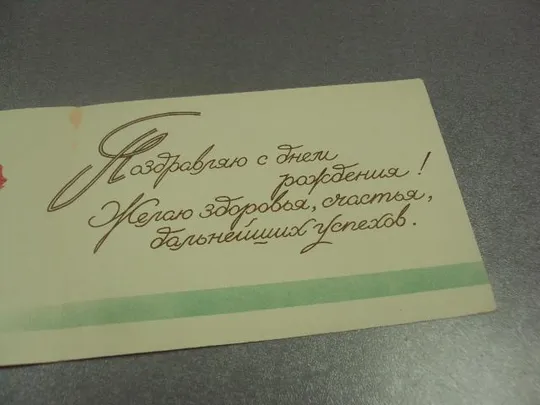 Поздравляю с днем
рождения!
Желаю здоровья, счастья,
дальнейших успехов.